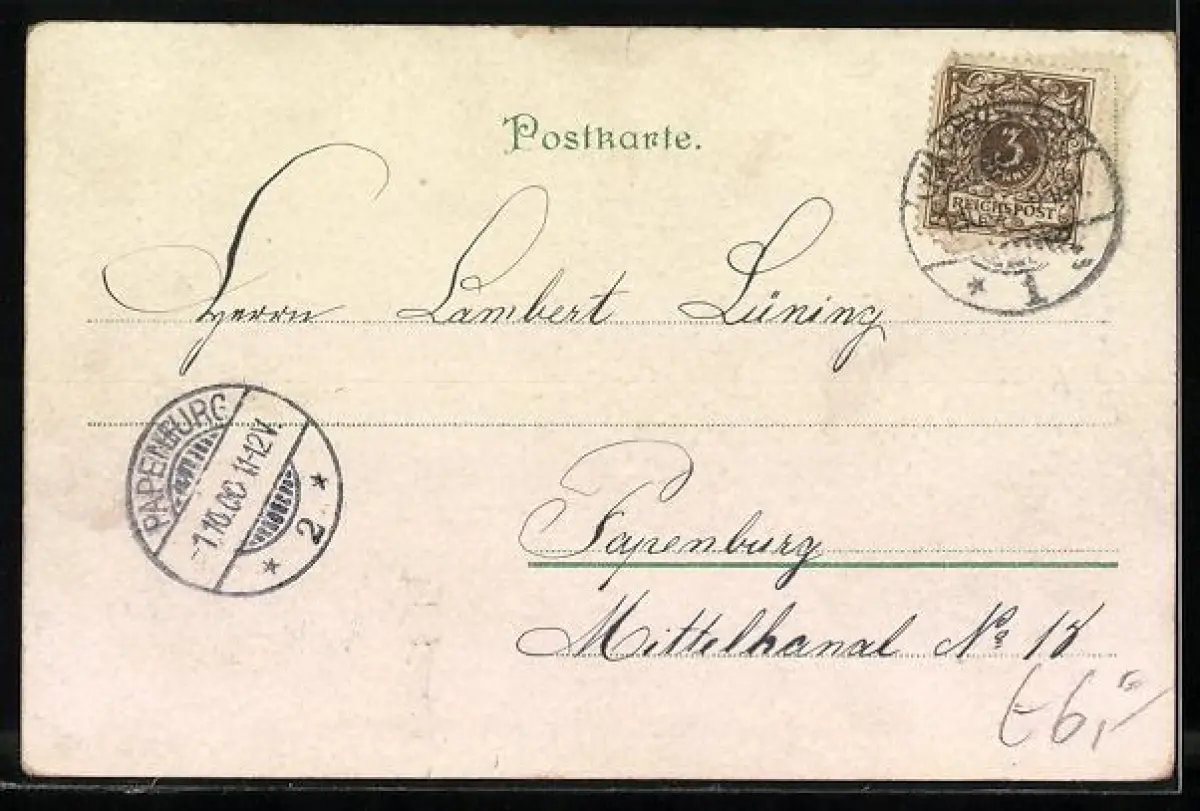 Postkarte.
3
PFENNIG
REICHSPOST
1
Herrn Lambert Lüning
PAPENBURG
1.10.00 11-12V.
2
Papenburg
Mittelkanal No